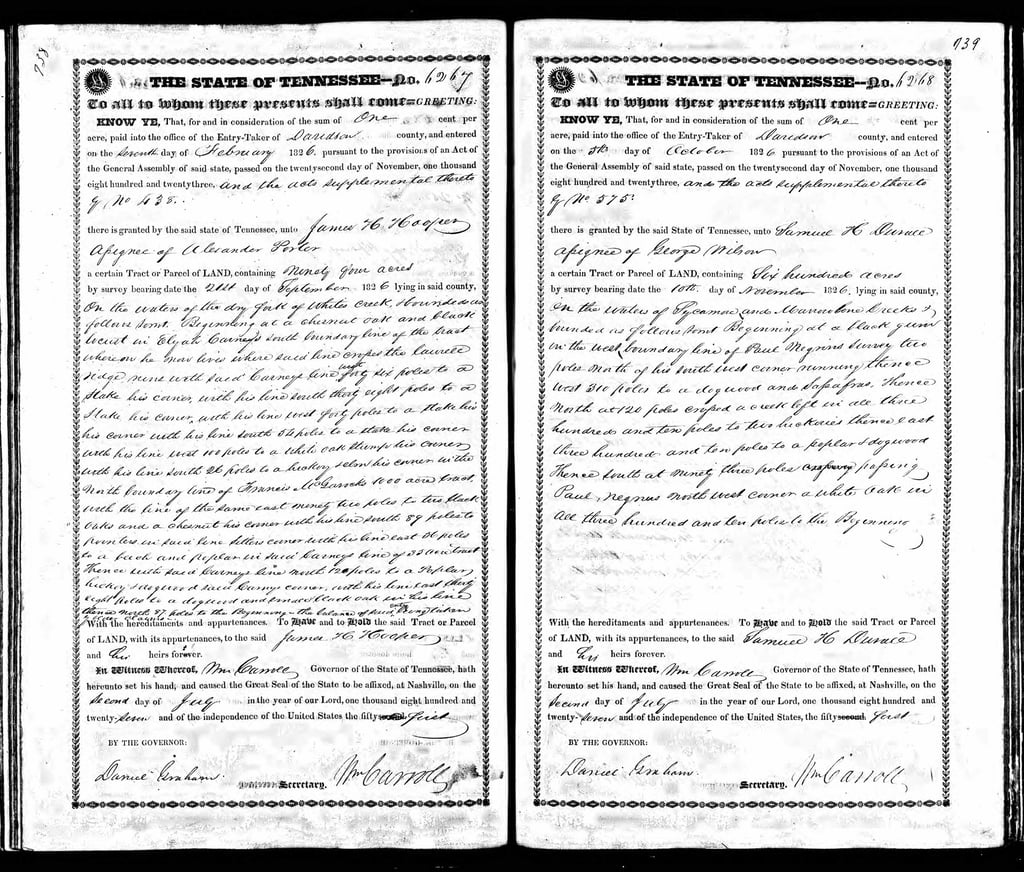 738
THE STATE OF TENNESSEE—No. 6267
To all to whom these presents shall come=GREETING:
KNOW YE, That, for and in consideration of the sum of One cent per
acre, paid into the office of the Entry-Taker of Davidson county, and entered
on the seventh day of February 1826 pursuant to the provisions of an Act of
the General Assembly of said state, passed on the twentysecond day of November, one thousand
eight hundred and twentythree, and the acts supplemental thereto
by No 438.
there is granted by the said state of Tennessee, unto James H Hooper
assignee of Alexander Porter
a certain Tract or Parcel of LAND, containing Ninety four acres
by survey bearing date the 21st day of September 1826 lying in said county,
On the waters of the dry fork of Whites Creek & bounded as
follows to wit. Beginning at a chesnut oak and black
locust in Elijah Carneys south boundary line of the tract
whereon he now lives where said line crosses the laurell
ridge runs with said Carneys line west forty six poles to a
stake his corner, with his line south thirty eight poles to a
stake, his corner, with his line west forty poles to a stake his
his corner with his line south 54 poles to a stake his corner
with his line west 100 poles to a white oak stump his corner
with his line south 26 poles to a hickory & elm his corner in the
North boundary line of Francis McGavocks 1000 acre tract,
with the line of the same east ninety two poles to two black
oaks and a chesnut his corner with his line south 89 poles to
pointers in said line corner with his line east 26 poles
to a beech and poplar in said Carneys line of 35 acre tract
Thence with said Carneys line north 120 poles to a Poplar
hickory & dogwood said Carneys corner, with his line east thirty
eight poles to a dogwood and small black oak in his line
thence north 37 poles to the Beginning – the balance of said being taken
by older claims
With the hereditaments and appurtenances. To Have and to Hold the said Tract or Parcel
of LAND, with its appurtenances, to the said James H Hooper
and his heirs forever.
In Witness Whereof, Wm Carroll Governor of the State of Tennessee, hath
hereunto set his hand, and caused the Great Seal of the State to be affixed, at Nashville, on the
second day of July in the year of our Lord, one thousand eight hundred and
twenty-seven and of the independence of the United States, the fifty second first
BY THE GOVERNOR:
Daniel Graham. Secretary. Wm Carroll
739
THE STATE OF TENNESSEE—No. 6268
To all to whom these presents shall come=GREETING:
KNOW YE, That, for and in consideration of the sum of One cent per
acre, paid into the office of the Entry-Taker of Davidson county, and entered
on the 5th day of October 1826 pursuant to the provisions of an Act of
the General Assembly of said state, passed on the twentysecond day of November, one thousand
eight hundred and twentythree, and the acts supplemental thereto
by No 575:
there is granted by the said State of Tennessee, unto Samuel H Durale
assignee of George Wilson
a certain Tract or Parcel of LAND, containing Six hundred acres
by survey bearing date the 10th day of November 1826. lying in said county,
On the waters of Sycamore and Marrowbone Creeks &
bounded as follows to wit Beginning at a black gum
in the west boundary line of Paul Negrins survey two
poles North of his south west corner running thence
West 310 poles to a dogwood and sassafras. Thence
North at 120 poles crossed a creek left in all three
hundred and ten poles to two hickories thence east
three hundred and ten poles to a poplar & dogwood
Thence south at ninety three poles passing
Paul, Negrins north west corner a white oak in
all three hundred and ten poles to the Beginning
With the hereditaments and appurtenances. To Have and to Hold the said Tract or Parcel
of LAND, with its appurtenances, to the said Samuel H Durale
and his heirs forever.
In Witness Whereof, Wm Carroll Governor of the State of Tennessee, hath
hereunto set his hand, and caused the Great Seal of the State to be affixed, at Nashville, on the
second day of July in the year of our Lord, one thousand eight hundred and
twenty-seven and of the independence of the United States, the fifty second first
BY THE GOVERNOR:
Daniel Graham. Secretary. Wm Carroll